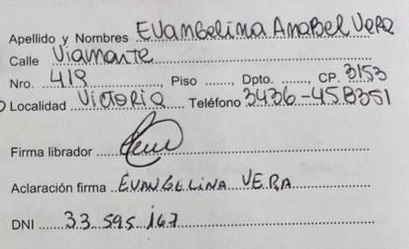 Apellido y Nombres Evangelina Anabel Vera
Calle Viamonte
Nro. 419 Piso ........ Dpto. ........ CP. 3153
Localidad Victoria Teléfono 3436-458351
Firma librador
Aclaración firma EVANGELINA VERA
DNI 33 595 167